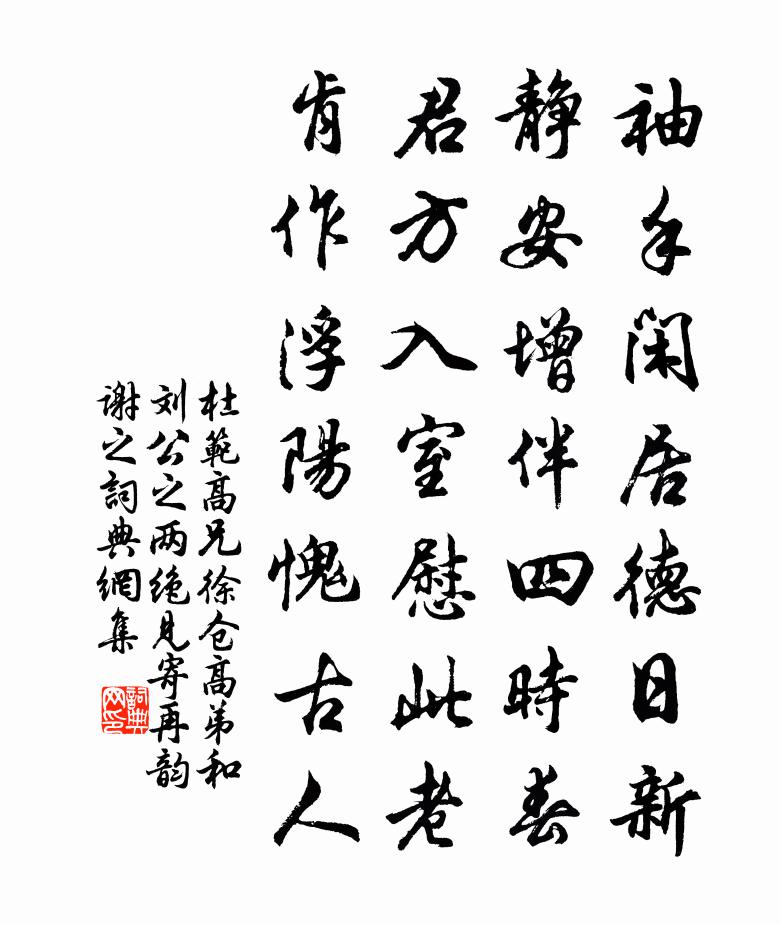 袖手閑居德日新
静安增伴四時春
君方入室慰此老
肯作浮陽愧古人
杜範高兄徐仓高弟和
刘公之两绝見寄再韵
谢之詞典網集
詞典网印